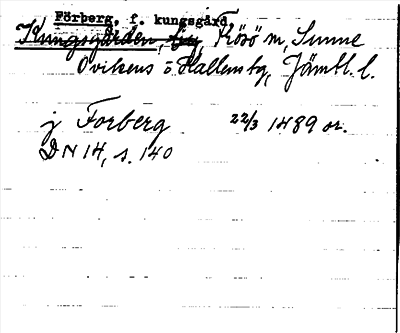 Förberg, f. kungsgård,
Kungsgården, Frösö m, Sunne
Ovikens o Hallens tg, Jämtl. l.
j Forberg 22/3 1489 or.
DN 14, s. 140